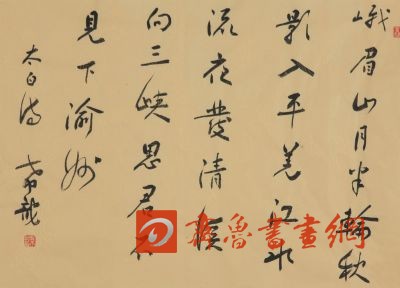 峨眉山月半轮秋
影入平羌江水
流夜发清溪
向三峡思君不
见下渝州
太白诗
鲁书画網